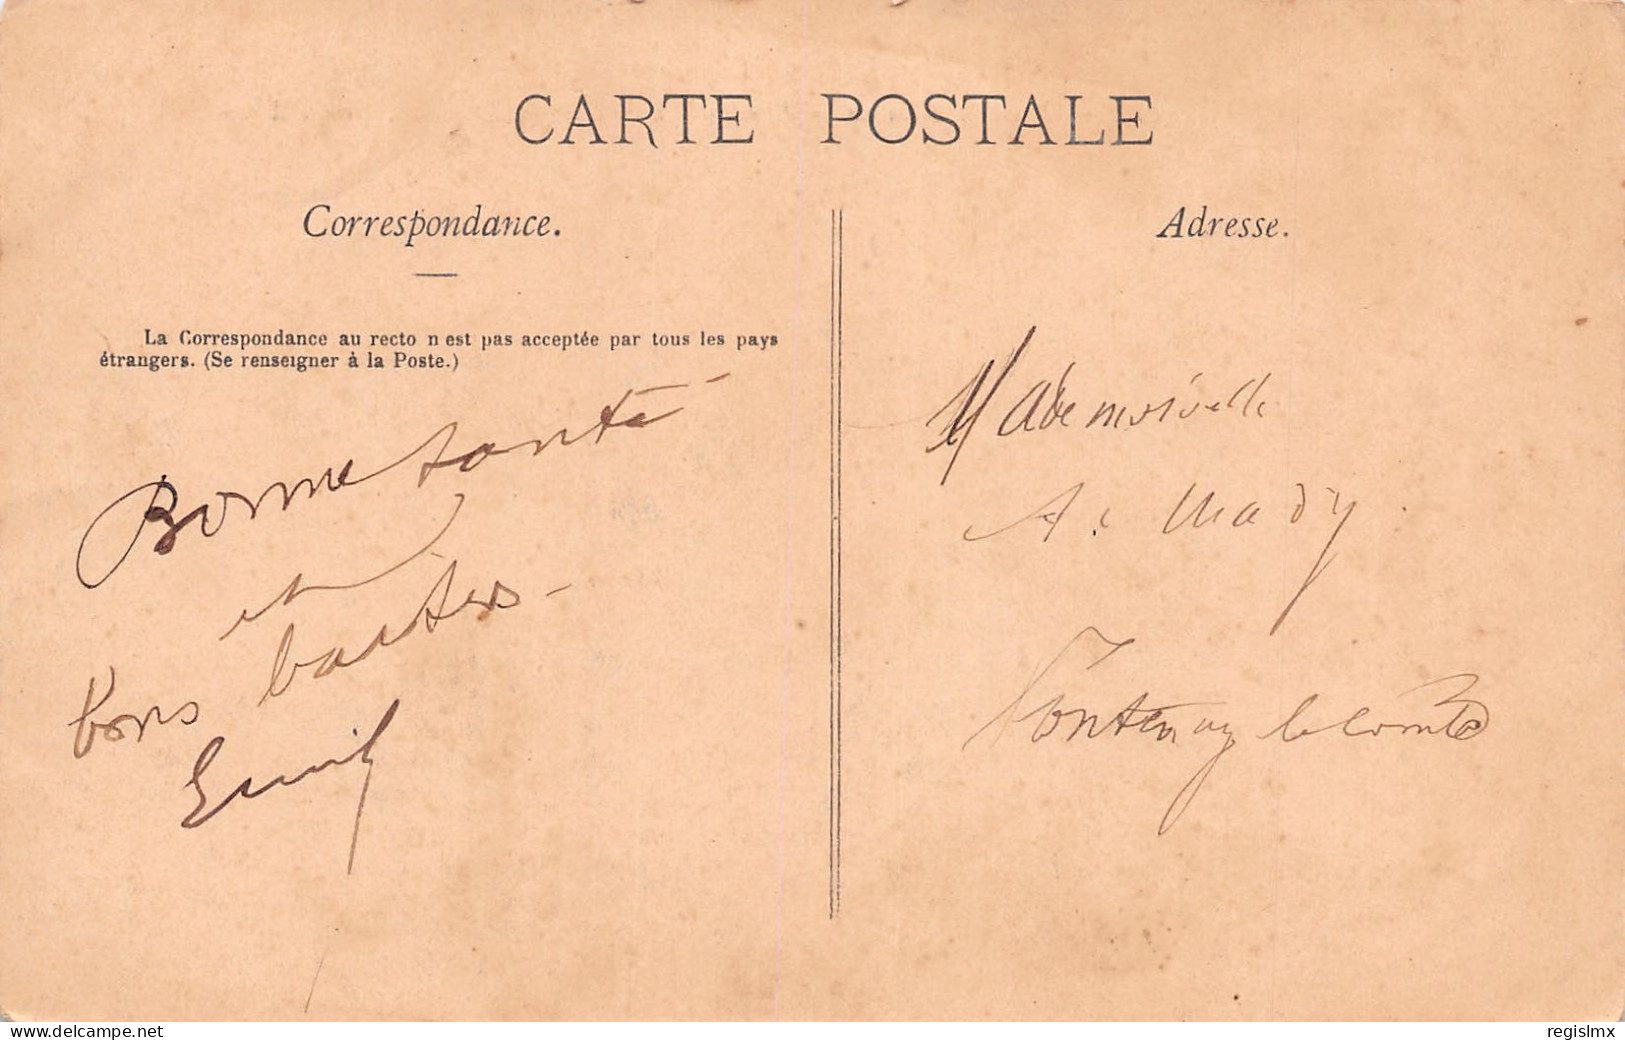 CARTE POSTALE
Correspondance.
La Correspondance au recto n'est pas acceptée par tous les pays
étrangers. (Se renseigner à la Poste.)
Bonne santé
et
bons baisers
Emil
Adresse.
Mademoiselle
A. Mady.
Fontenay le Comte
www.delcampe.net
regislmx